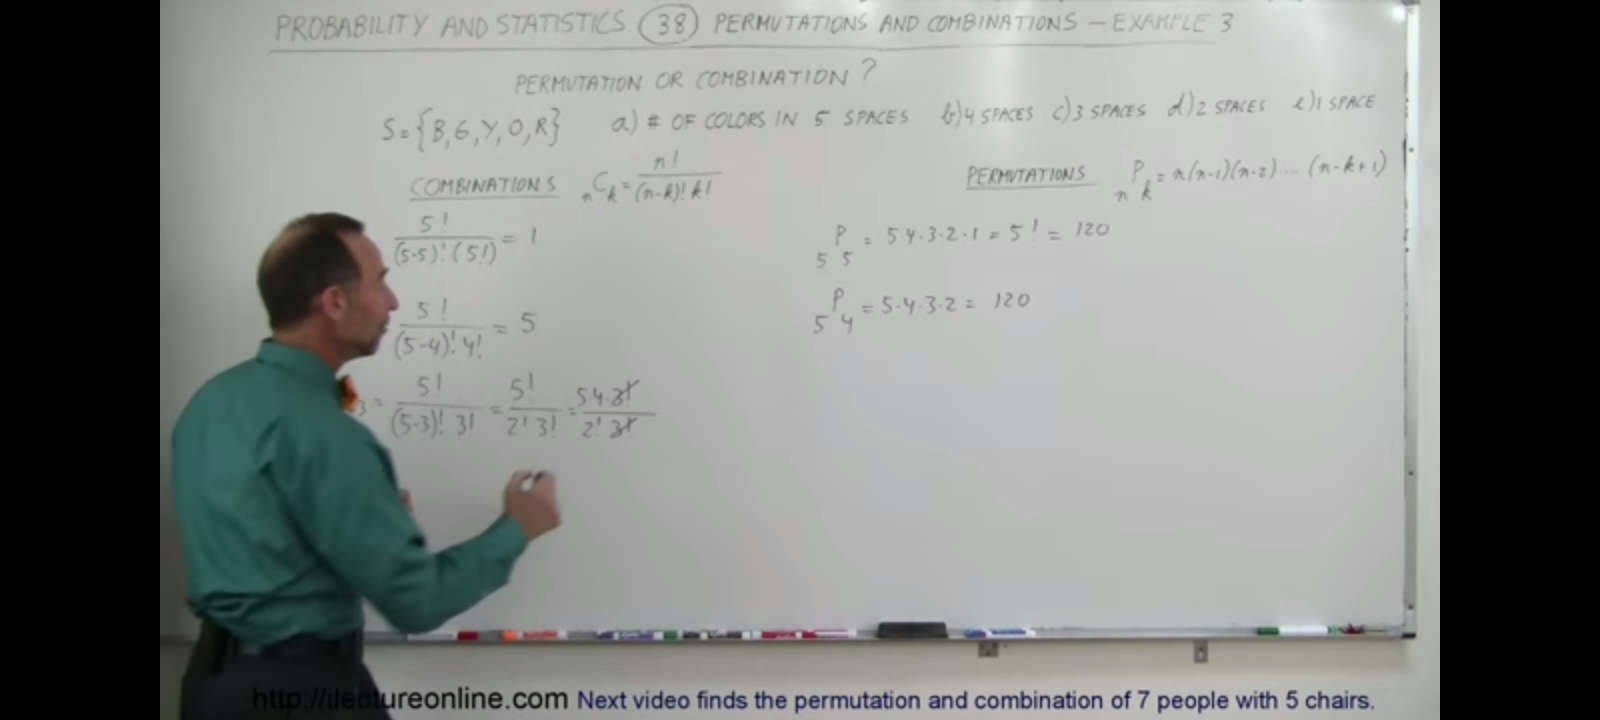 PROBABILITY AND STATISTICS 38 PERMUTATIONS AND COMBINATIONS – EXAMPLE 3
PERMUTATION OR COMBINATION ?
S = {B, G, Y, O, R} a) # OF COLORS IN 5 SPACES b) 4 SPACES c) 3 SPACES d) 2 SPACES e) 1 SPACE
COMBINATIONS nCk = n! / (n-k)! k!
5! / (5-5)! (5!) = 1
5! / (5-4)! 4! = 5
3 = 5! / (5-3)! 3! = 5! / 2! 3! = 5·4·3! / 2! 3!
PERMUTATIONS nPk = n(n-1)(n-2)....(n-k+1)
5P5 = 5·4·3·2·1 = 5! = 120
5P4 = 5·4·3·2 = 120
http://ilectureonline.com Next video finds the permutation and combination of 7 people with 5 chairs.